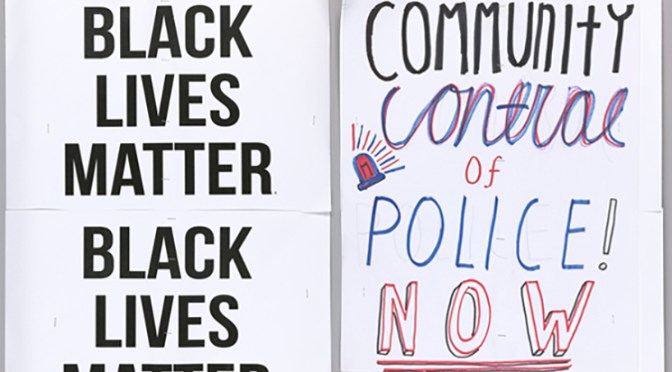 BLACK
LIVES
MATTER
BLACK
LIVES
MATTER
COMMUNITY
Control
Of
POLICE!
NOW